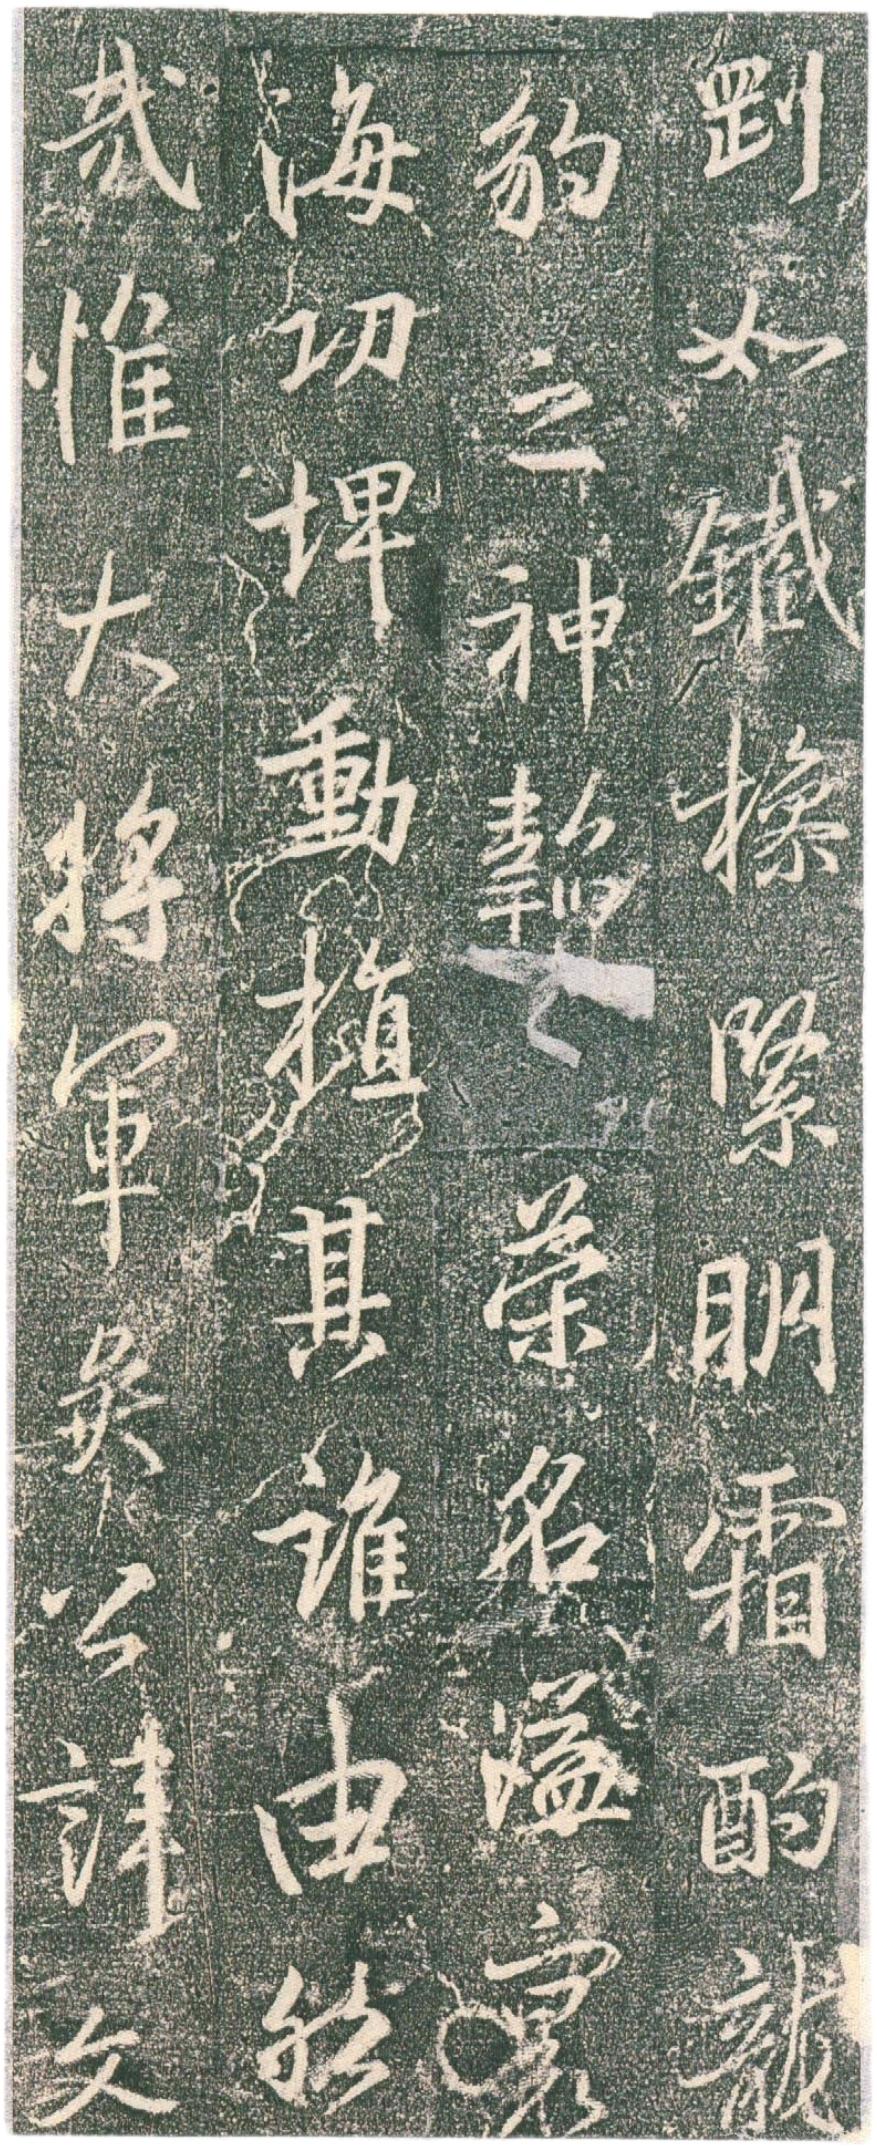 剛如鐵操緊明霜酌龍
豹之神韜榮名溢寰
海功埤動植其誰由然
哉惟大將軍矣公諱文